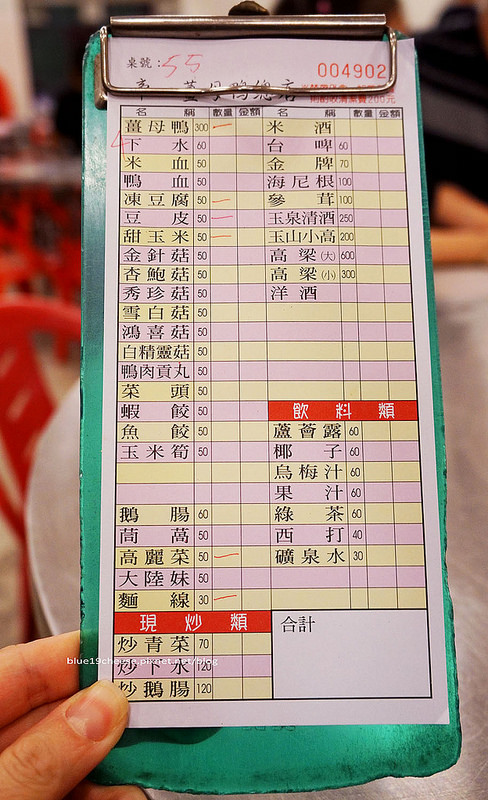 桌號：55
004902
薑母鴨總店
名 稱 數量 金額 名 稱 數量 金額
薑母鴨 300 一 米酒
下水 60 台啤 60
米血 50 金牌 70
鴨血 50 海尼根 100
凍豆腐 50 一 參茸 100
豆皮 50 一 玉泉清酒 250
甜玉米 50 一 玉山小高 200
金針菇 50 高粱(大) 600
杏鮑菇 50 高粱(小) 300
秀珍菇 50 洋酒
雪白菇 50
鴻喜菇 50
白精靈菇 50
鴨肉貢丸 50
菜頭 50
蝦餃 50 飲料類
魚餃 50 蘆薈露 60
玉米筍 50 椰子 60
烏梅汁 60
果汁 60
鵝腸 60 綠茶 60
茼萵 50 西打 40
高麗菜 50 一 礦泉水 30
大陸妹 50
麵線 30 一
現炒類 合計
炒青菜 70
炒下水 120
炒鵝腸 120
blue19cheese.pixnet.net/blog